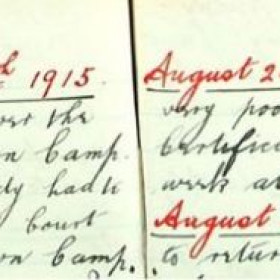 h 1915.
over the
on Camp.
ly had to
Court
on Camp.
August 2
very poo
Certific
week a
August
to retu